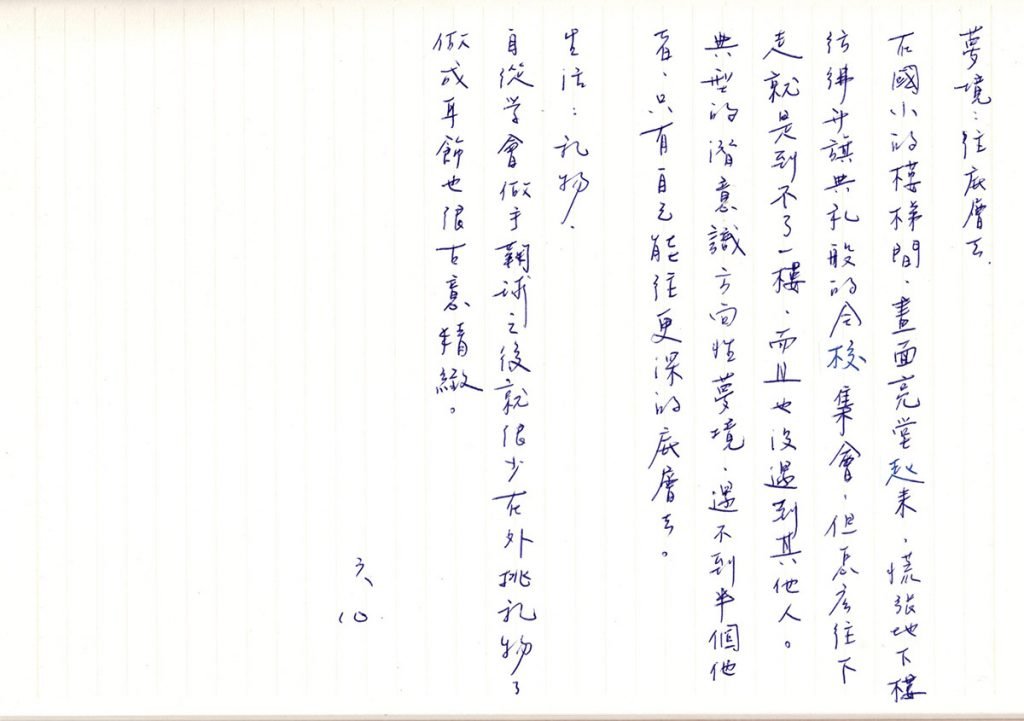 夢境:往底層去.
在國小的樓梯間、畫面亮堂起来、慌張地下樓
彷彿升旗典礼般的全校集會,但怎麼往下
走就是到不了一樓、而且也沒遇到其他人。
典型的潛意識方向性夢境、遇不到半個他
者、只有自己能往更深的底層去。
生活:礼物.
自從学會做手鞠球之後就很少在外挑礼物了
做成耳飾也很古意精緻。
六
10